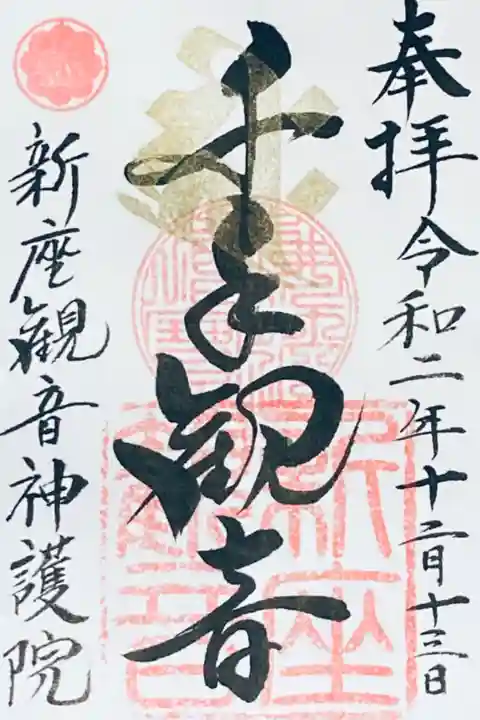 奉拝 令和二年十二月十三日
千手観音
新座観音神護院